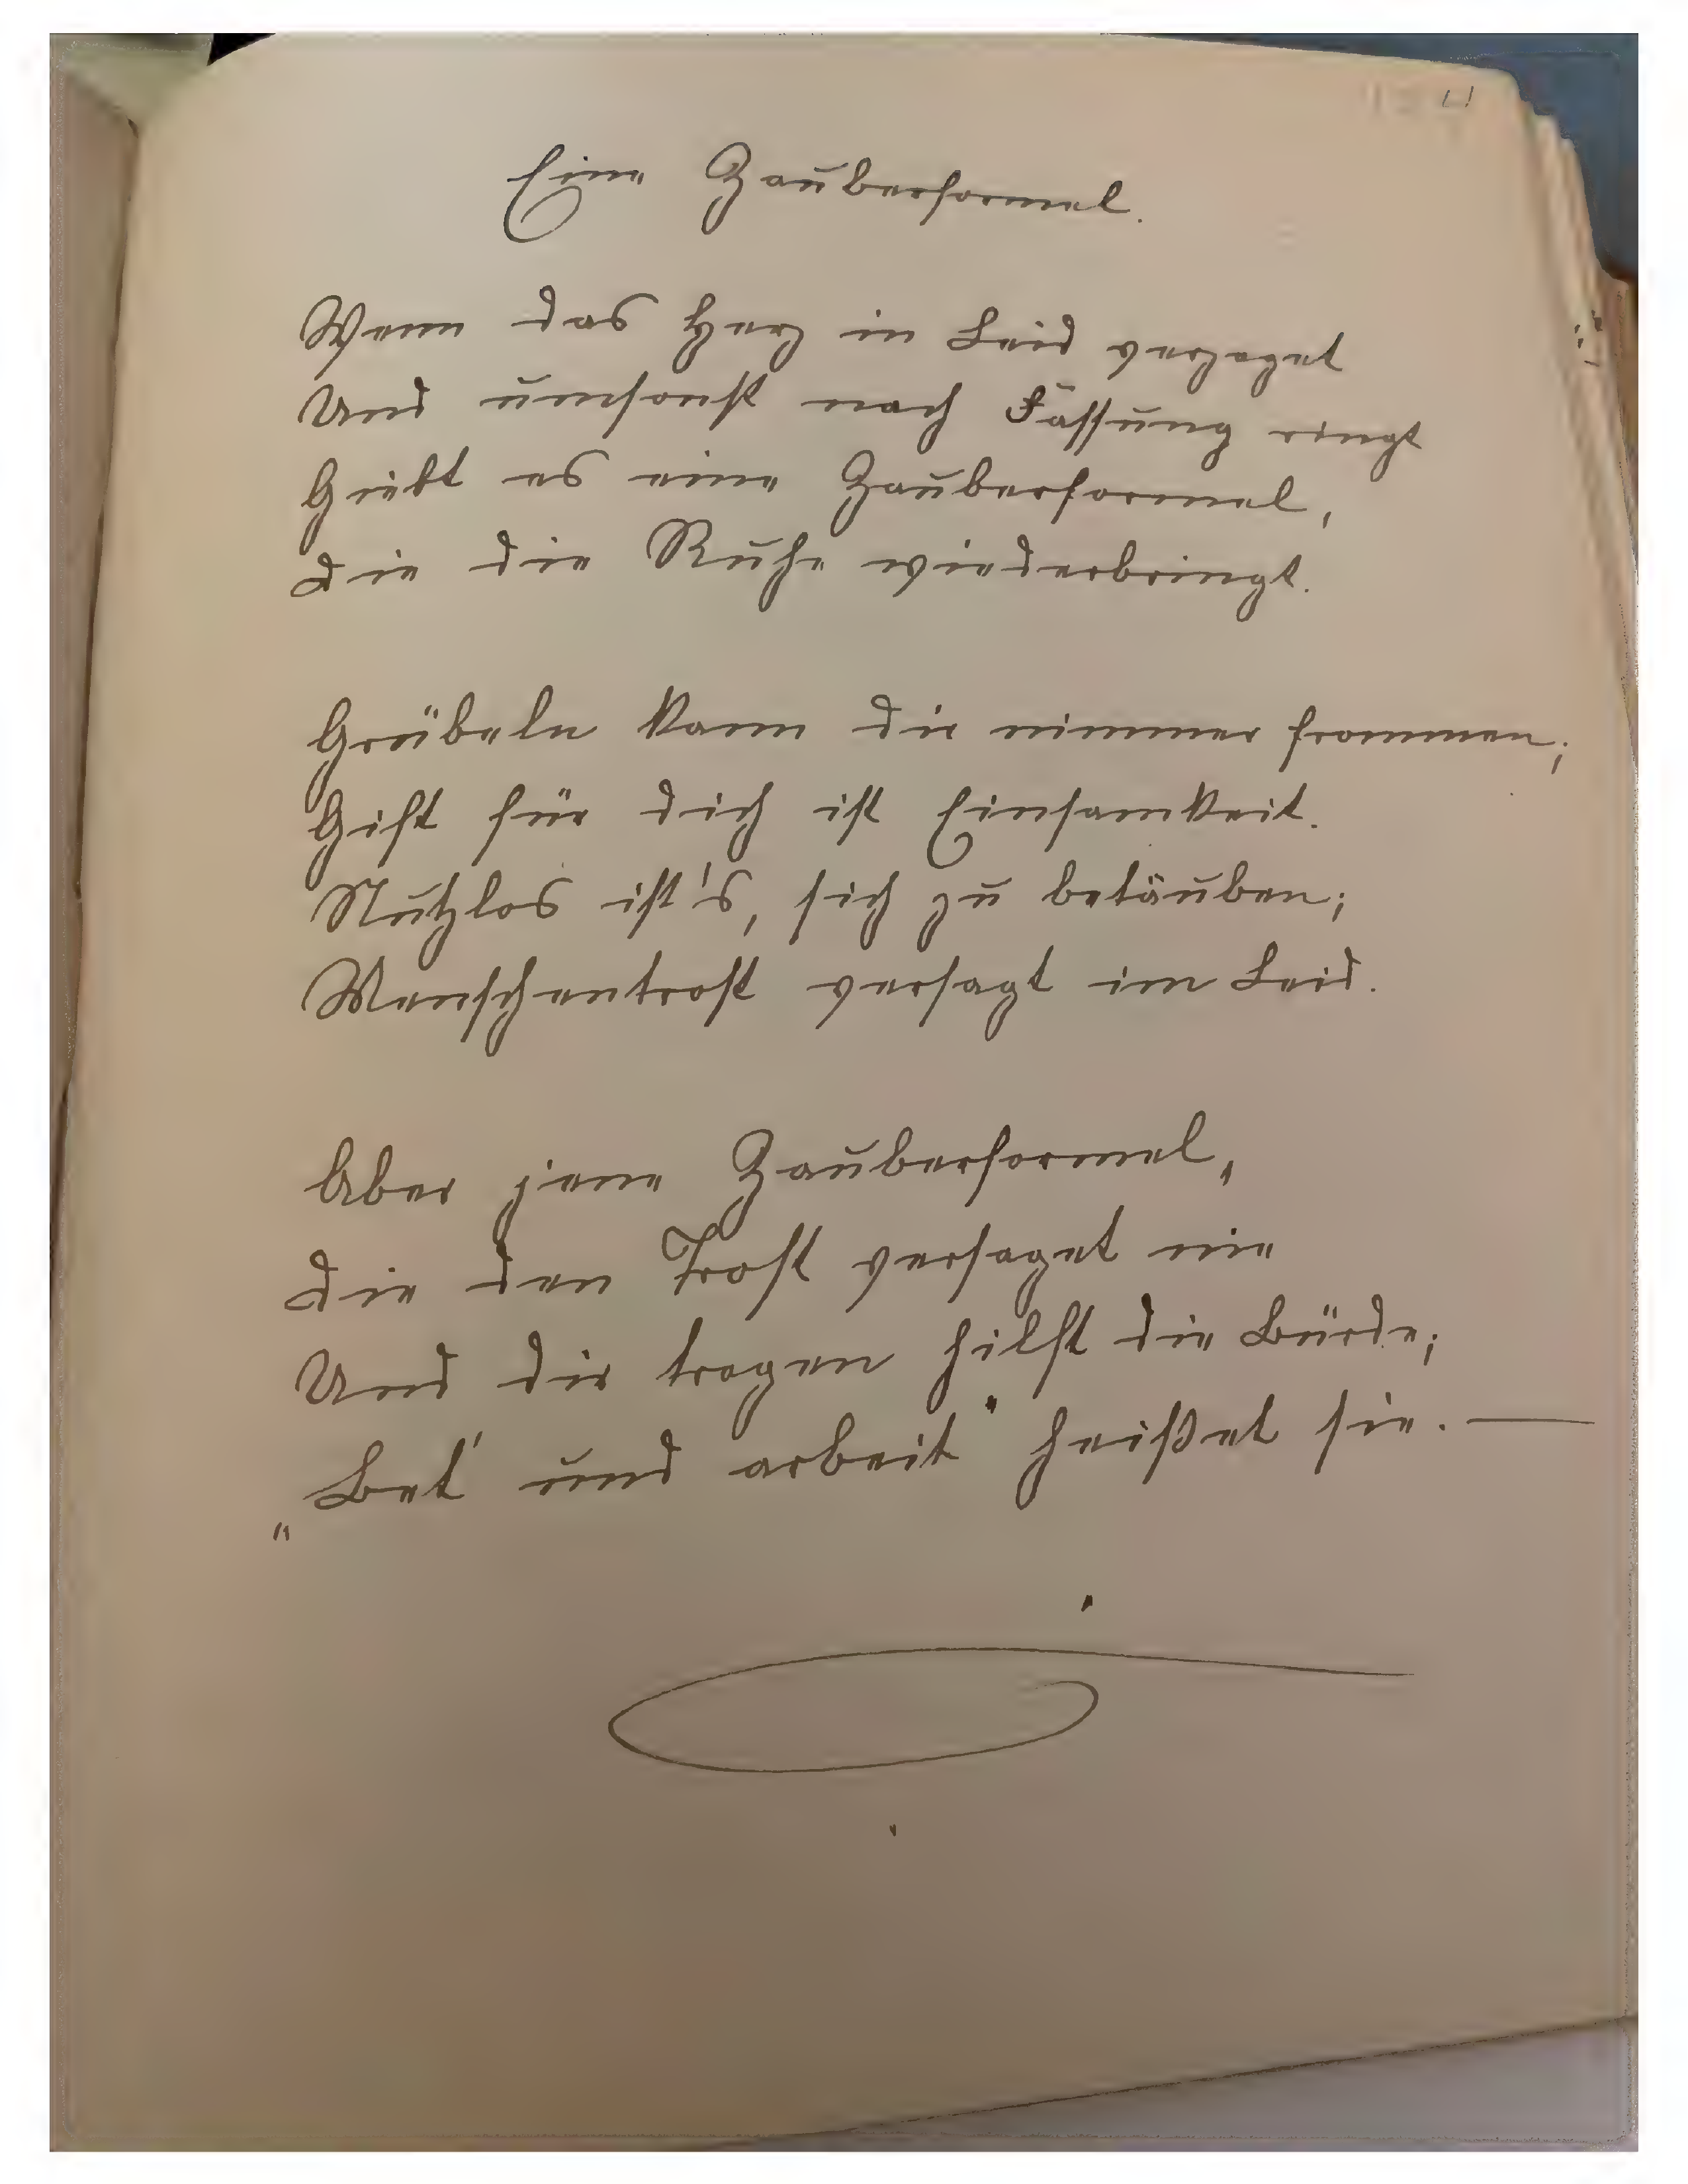 Eine Zauberformel.
Wenn das Herz in Leid verzaget
Und umsonst nach Fassung ringt
Giebt es eine Zauberformel,
Die die Ruhe wiederbringt.
Grübeln kann dir nimmer frommen;
Gift für dich ist Einsamkeit.
Nutzlos ist's, sich zu betäuben;
Menschentrost versagt im Leid.
Aber jene Zauberformel,
Die den Trost versaget nie
Und dir tragen hilft die Bürde;
„Bet' und arbeit" heißet sie. —